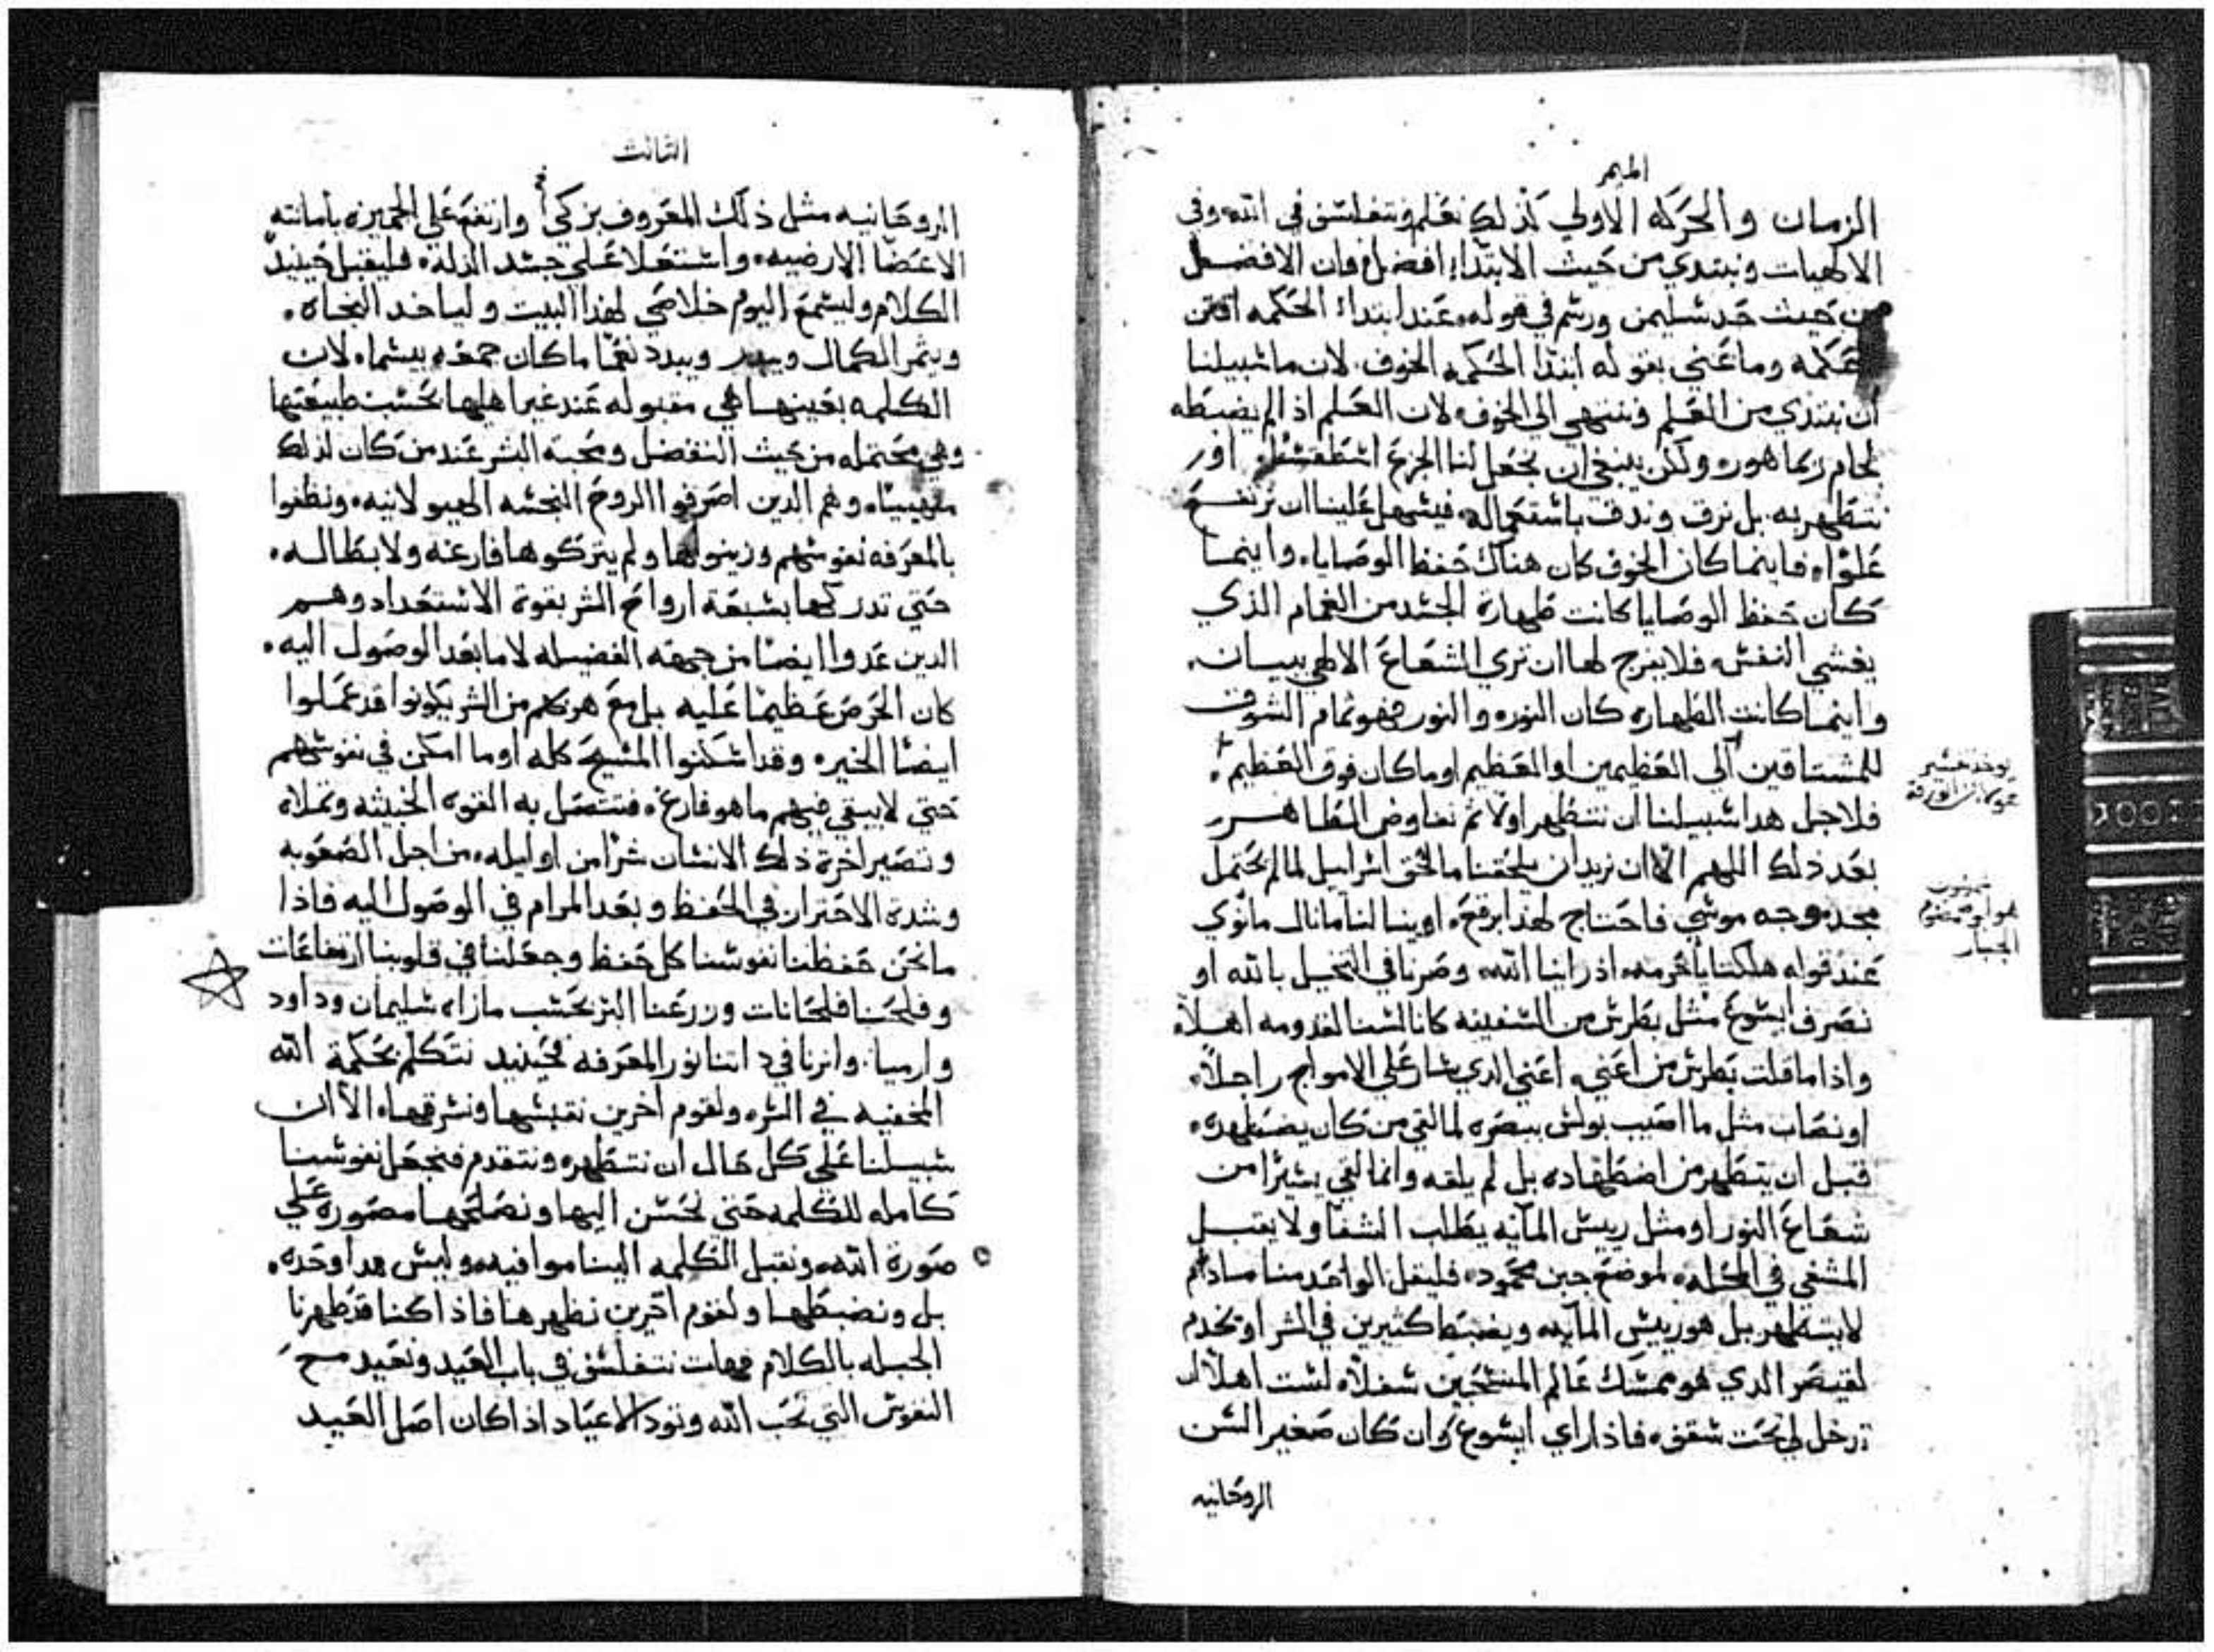 الميمر
الزمان والحركه الاولي كذلك نعلم ونتفلسف في الله وفي
الالهيات ونبتدي من حيث الابتداء افضل فان الافضل
من حيث حد سليمن ورسم في قوله عند ابتداء الحكمه اقتن
حكمه وما عني بقوله ابتدا الحكمه الخوف لان ما سبيلنا
ان نبتدي من العلم وننتهي الي الخوف لان العلم اذ الم يضبطه
لجام ربما هور ولكن ينبغي ان نجعل لنا الجزع اسطقسا اول
نتطهر به بل نرق وندق باستعماله فيسهل علينا ان نرتفع
علوا فاينما كان الخوف كان هناك حفظ الوصايا واينما
كان حفظ الوصايا كانت طهارة الجسد من الغمام الذي
يغشي النفس فلا يفرج لها ان تري الشعاع الالهي ببيان
واينما كانت الطهاره كان النور والنور فهو تمام الشوق
للمشتاقين الي العظيمين او العظيم او ما كان فوق العظيم
فلاجل هدا سبيلنا ان نتطهر اولا ثم نفاوض الطاهر
بعد ذلك اللهم الا ان نريد ان يلحقنا ما لحق اسراييل لما لم يحتمل
مجد وجه موسي فاحتاج لهذا برقع او ينالنا ما نال مانوي
عند قوله هلكنا يا حرمه اذ راينا الله وصرنا في التخيل بالله او
نصرف ايسوع مثل بطرس من السفينه كانا لسنا لقدومه اهلا
واذا ما قلت بطرس من اعني اعني الدي سار علي الامواج راجلا
او نصاب مثل ما اصيب بولس ببصره لما لقي من كان يضطهده
قبل ان يتطهر من اضطهاده بل لم يلقه وانما لقي يسيرا من
شعاع النور او مثل رييس المايه يطلب الشفا ولا يقبل
المشفي في المحله لموضع جبن محمود فليقل الواحد منا ما دام
لا يتطهر بل هو رييس المايه ويضبط كثيرين في الشر او يخدم
لقيصر الدي هو ممسك عالم المنتحيين سفلا لست اهلا ان
تدخل لي تحت سقفي فاذا راي ايسوع وان كان صغير السن
الروحانيه
هو ابو شمشوم
الجبار
الثالث
الروحانيه مثل ذلك المعروف بزكي وارتفع علي الجميزه باماتته
الاعضا الارضيه واستعلا علي جسد الذله فليقبل حينيد
الكلام وليسمع اليوم خلاصي لهذا البيت ولياخد النجاه
ويثمر الكمال ويبدر ويبدد نعما ما كان جمعه بيسما لان
الكلمه بعينها هي مقبوله عند غير اهلها بحسب طبيعتها
وهي محتمله من حيث التفضل ومحبة البشر عند من كان لذلك
مهييا وهم الدين اصرفوا الروح النجسه الهيولانيه ونظفوا
بالمعرفه نفوسهم وزينوها ولم يتركوها فارغه ولا بطاله
حتي تدركها بسبعة ارواح الشر بقوة الاستعداد وهم
الدين عدوا ايضا من جهة الفضيله لا ما بعد الوصول اليه
كان الحرص عظيما عليه بل مع هربهم من الشر يكونوا قد عملوا
ايضا الخير وقد اسكنوا المسيح كله او ما امكن في نفوسهم
حتي لا يبقي فيهم ما هو فارغ فتتصل به القوه الخبيثه وتملاه
وتصير اخرة ذلك الانسان شرا من اوايله من اجل الصعوبه
وشدة الاحتراز في الحفظ وبعد المرام في الوصول اليه فاذا
ما نحن حفظنا نفوسنا كل حفظ وجعلنا في قلوبنا ارتفاعات
وفلحنا فلحانات وزرعنا البر بحسب ما زاه سليمان وداود
وارميا وانرنا في داتنا نور المعرفه فحينيد نتكلم بحكمة الله
المخفيه في السر ولقوم اخرين نقبسها ونشرقها الا ان
سبيلنا علي كل حال ان نتطهر ونتقدم فنجعل نفوسنا
كامله للكلمه حتي نحسن اليها ونصلحها مصوره علي
صورة الله ونقبل الكلمه الينا موافيه وليس هدا وحده
بل ونضبطها ولقوم اخرين نظهرها فاذا كنا قد طهرنا
الجبله بالكلام فهات نتفلسف في باب العيد ونعيد مع
النفوس التي تحب الله وتود الاعياد اذا كان اصل العيد